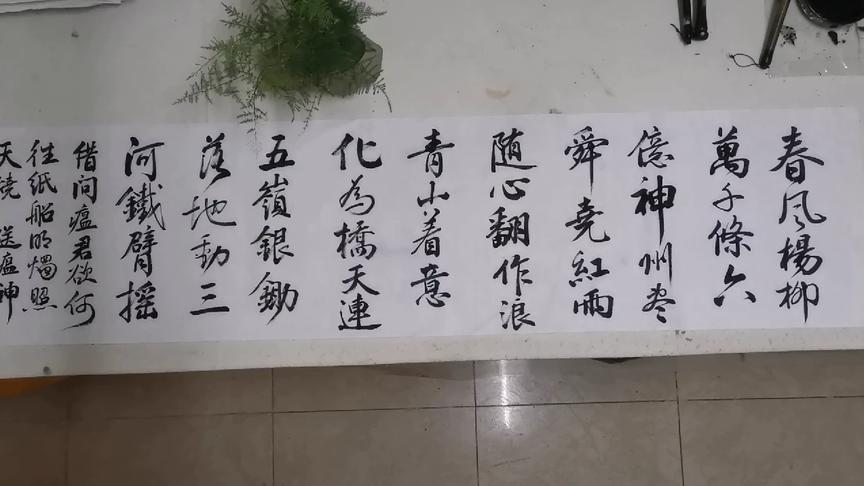 春风楊柳
萬千條六
億神州尽
舜堯紅雨
随心翻作浪
青山着意
化為橋天連
五嶺銀鋤
落地動三
河鐵臂摇
借问瘟君欲何
往纸船明燭照
天烧 送瘟神